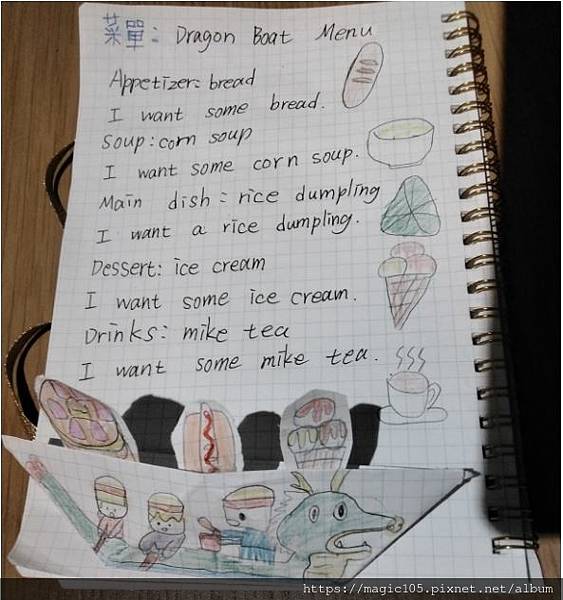 菜單: Dragon Boat Menu
Appetizer: bread
I want some bread.
Soup: corn soup
I want some corn soup.
Main dish: rice dumpling
I want a rice dumpling.
Dessert: ice cream
I want some ice cream.
Drinks: mike tea
I want some mike tea.
https://magic105.pixnet.net/album